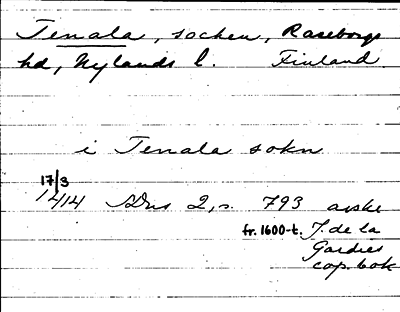 Tenala, socken, Raseborgs
hd, Nylands l. Finland
i Tenala sokn
17/3
1414 SDns 2, s. 793 avskr
fr. 1600-t. J. de la
Gardies
cop. bok